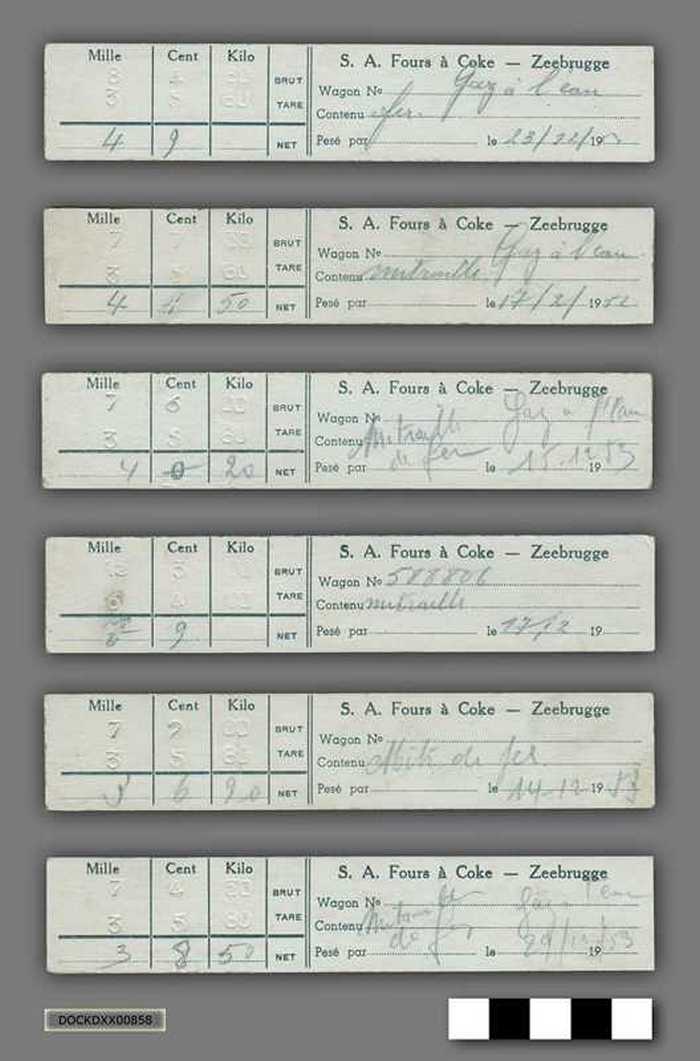 Mille Cent Kilo
BRUT
TARE
4 9 NET
S. A. Fours à Coke — Zeebrugge
Wagon No Gaz à l'eau
Contenu fer.
Pesé par le 23/12/19
Mille Cent Kilo
7 BRUT
3 TARE
4 50 NET
S. A. Fours à Coke — Zeebrugge
Wagon No Gaz à l'eau
Contenu mitraille
Pesé par le 17/2/1952
Mille Cent Kilo
7 6 BRUT
3 5 80 TARE
4 0 20 NET
S. A. Fours à Coke — Zeebrugge
Wagon No Gaz à l'eau
Contenu Mitraille
de fer
Pesé par le 15.12 1953
Mille Cent Kilo
3 BRUT
4 TARE
9 NET
S. A. Fours à Coke — Zeebrugge
Wagon No 588806
Contenu mitraille
Pesé par le 17/12 19
Mille Cent Kilo
7 2 BRUT
3 5 TARE
3 6 90 NET
S. A. Fours à Coke — Zeebrugge
Wagon No
Contenu Mitr. de fer
Pesé par le 14-12-1953
Mille Cent Kilo
7 4 30 BRUT
3 5 80 TARE
3 8 50 NET
S. A. Fours à Coke — Zeebrugge
Wagon No Gaz l'eau
Contenu
de fer
Pesé par le 29/12/53 19
DOCKDXX00858